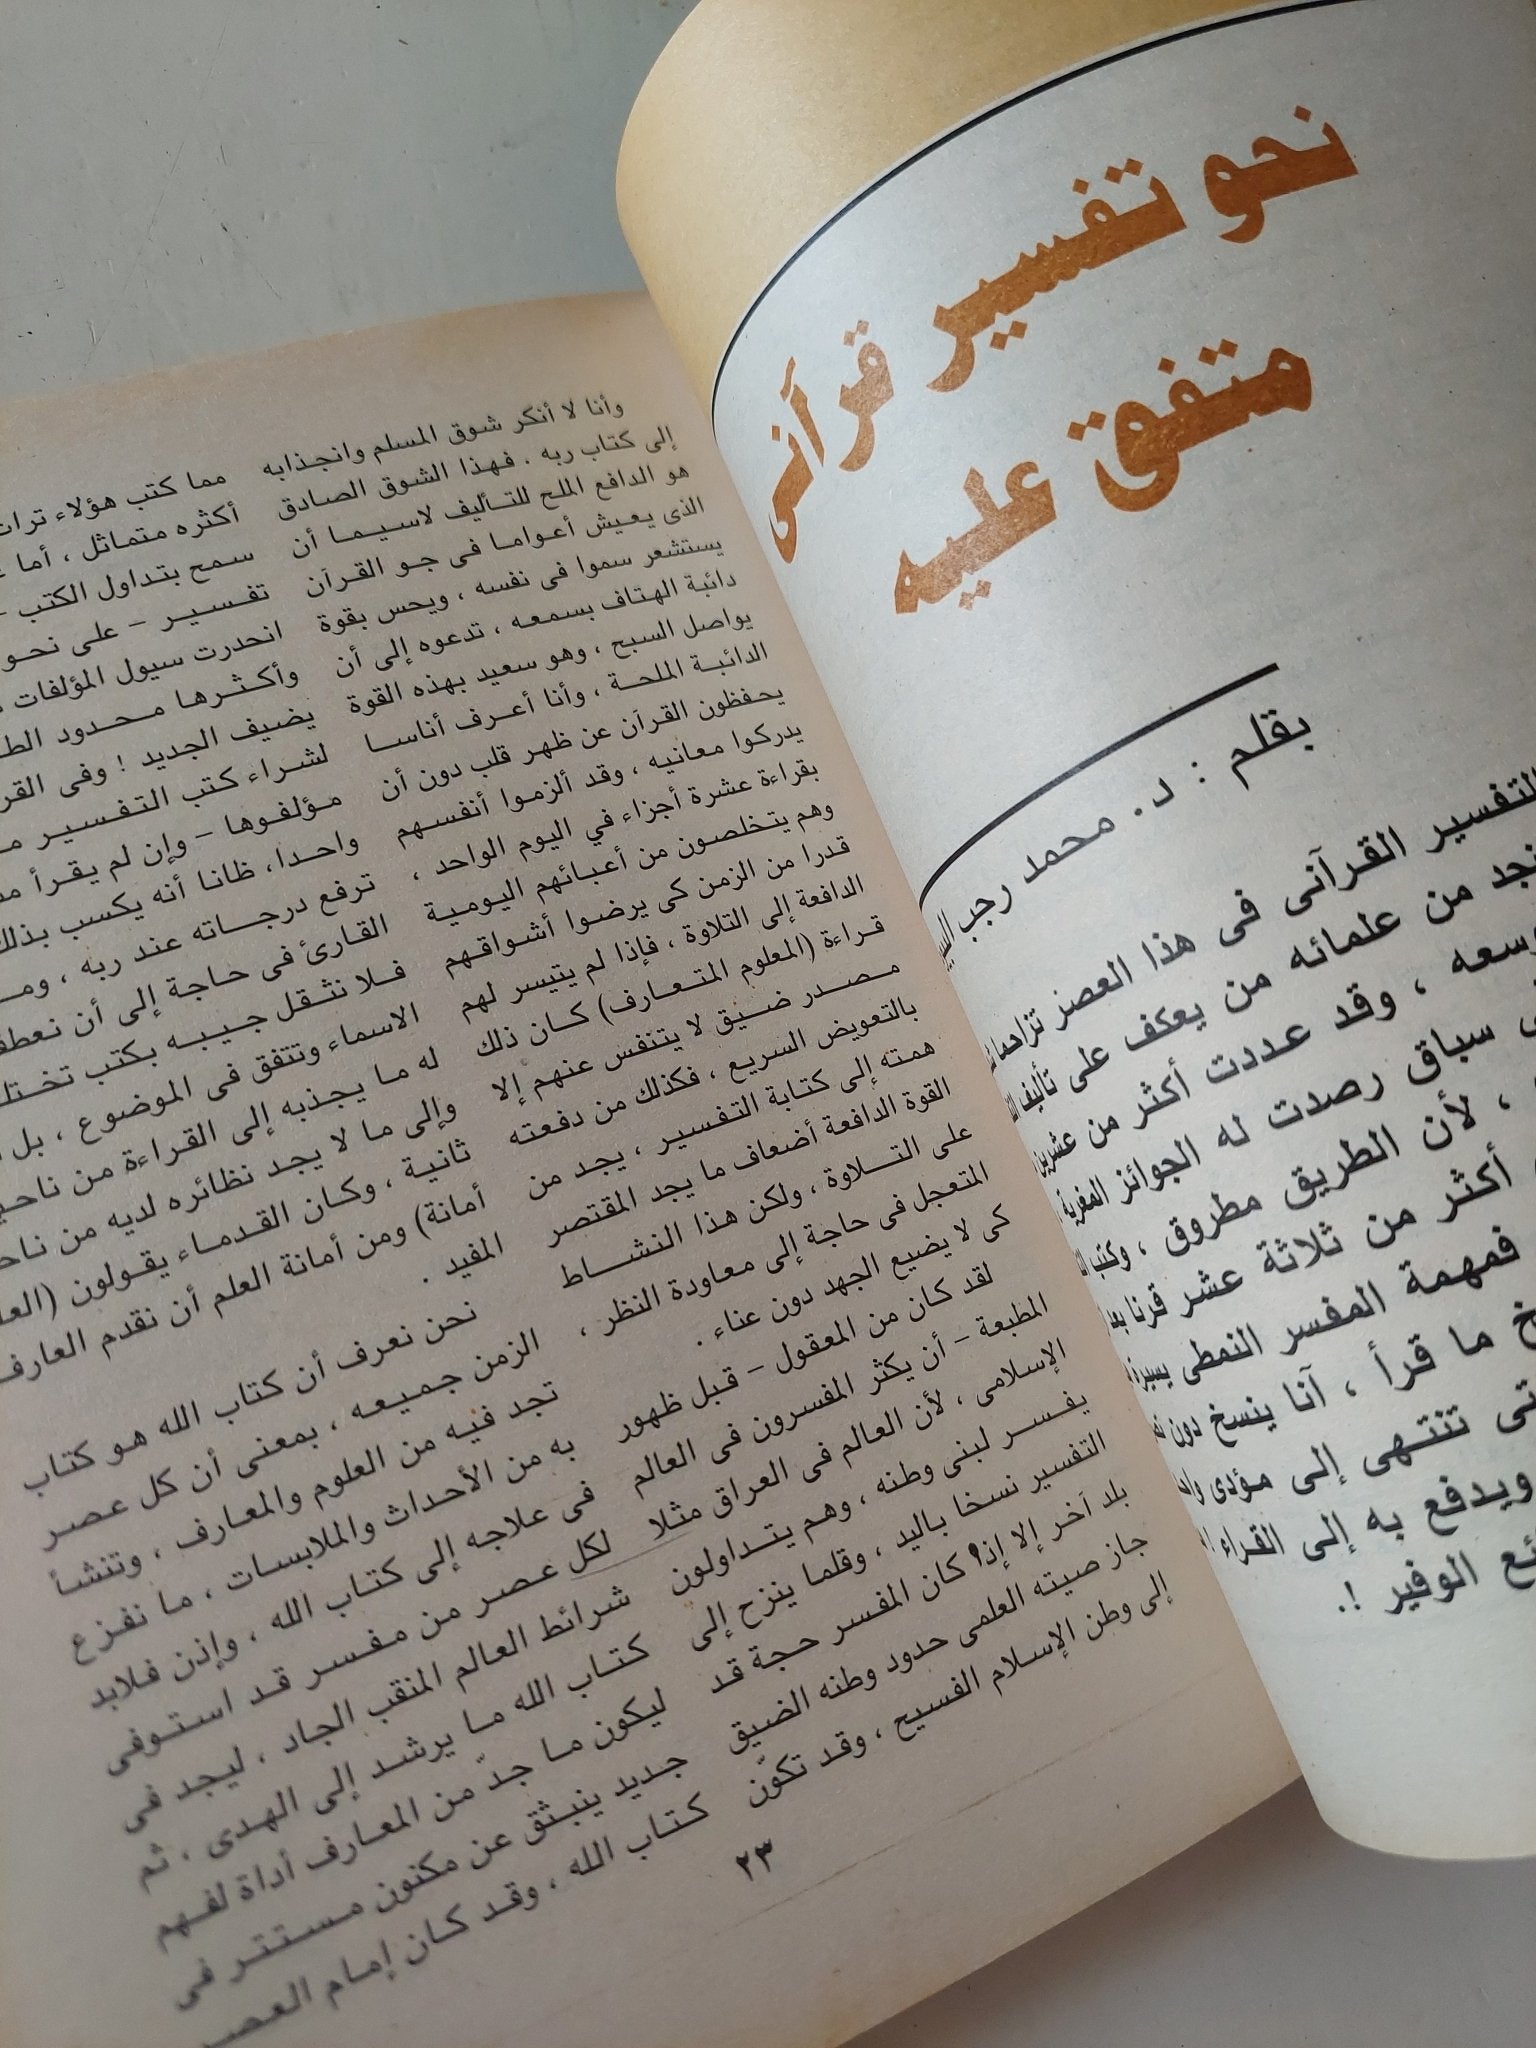 نحو تفسير قرآنى
متفق عليه
بقلم : د. محمد رجب
التفسير القرآنى فى هذا العصر
نجد من علمائه من يعكف على تأليف
وسعه ، وقد عددت أكثر من عشرين
سباق رصدت له الجوائز المغرية
، لأن الطريق مطروق ، وكتب
أكثر من ثلاثة عشر قرنا
فمهمة المفسر النمطى يسيرة
ما قرأ ، آنا ينسخ دون
تنتهى إلى مؤدى
ويدفع به إلى القراء
الوفير !.
وأنا لا أنكر شوق المسلم وانجذابه
إلى كتاب ربه . فهذا الشوق الصادق
هو الدافع الملح للتأليف لاسيما أن
الذى يعيش أعواما فى جو القرآن
يستشعر سموا فى نفسه ، ويحس بقوة
دائبة الهتاف بسمعه ، تدعوه إلى أن
يواصل السبح ، وهو سعيد بهذه القوة
الدائبة الملحة ، وأنا أعرف أناسا
يحفظون القرآن عن ظهر قلب دون أن
يدركوا معانيه ، وقد ألزموا أنفسهم
بقراءة عشرة أجزاء في اليوم الواحد ،
وهم يتخلصون من أعبائهم اليومية
قدرا من الزمن كى يرضوا أشواقهم
الدافعة إلى التلاوة ، فإذا لم يتيسر لهم
قراءة (المعلوم المتعارف) كان ذلك
مصدر ضيق لا يتنفس عنهم إلا
بالتعويض السريع ، فكذلك من دفعته
همته إلى كتابة التفسير ، يجد من
القوة الدافعة أضعاف ما يجد المقتصر
على التلاوة ، ولكن هذا النشاط
المتعجل فى حاجة إلى معاودة النظر ،
كى لا يضيع الجهد دون عناء .
لقد كان من المعقول – قبل ظهور
المطبعة – أن يكثر المفسرون فى العالم
الإسلامى ، لأن العالم فى العراق مثلا
يفسر لبنى وطنه ، وهم يتداولون
التفسير نسخا باليد ، وقلما ينزح إلى
بلد آخر إلا إذا كان المفسر حجة قد
جاز صيته العلمى حدود وطنه الضيق
إلى وطن الإسلام الفسيح ، وقد تكوّن
مما كتب هؤلاء
أكثره متماثل ، أما
سمح بتداول الكتب –
تفسير – على نحو
انحدرت سيول المؤلفات
وأكثرها محدود
يضيف الجديد ! وفى
لشراء كتب التفسير
مؤلفوها – وإن لم يقرأ
واحدا، ظانا أنه يكسب بذلك
ترفع درجاته عند ربه ،
القارئ فى حاجة إلى أن
فلا نثقل جيبه بكتب
الاسماء وتتفق فى الموضوع ، بل
له ما يجذبه إلى القراءة من
وإلى ما لا يجد نظائره لديه من
ثانية ، وكان القدماء يقولون
أمانة) ومن أمانة العلم أن نقدم
المفيد .
نحن نعرف أن كتاب الله هو كتاب
الزمن جميعه ، بمعنى أن كل عصر
تجد فيه من العلوم والمعارف ، وتنشأ
به من الأحداث والملابسات ، ما نفزع
فى علاجه إلى كتاب الله ، وإذن فلابد
لكل عصر من مفسر قد استوفى
شرائط العالم المنقب الجاد ، ليجد فى
كتاب الله ما يرشد إلى الهدى ، ثم
ليكون ما جدّ من المعارف أداة لفهم
جديد ينبثق عن مكنون مستتر فى
كتاب الله ، وقد كان إمام
٢٣